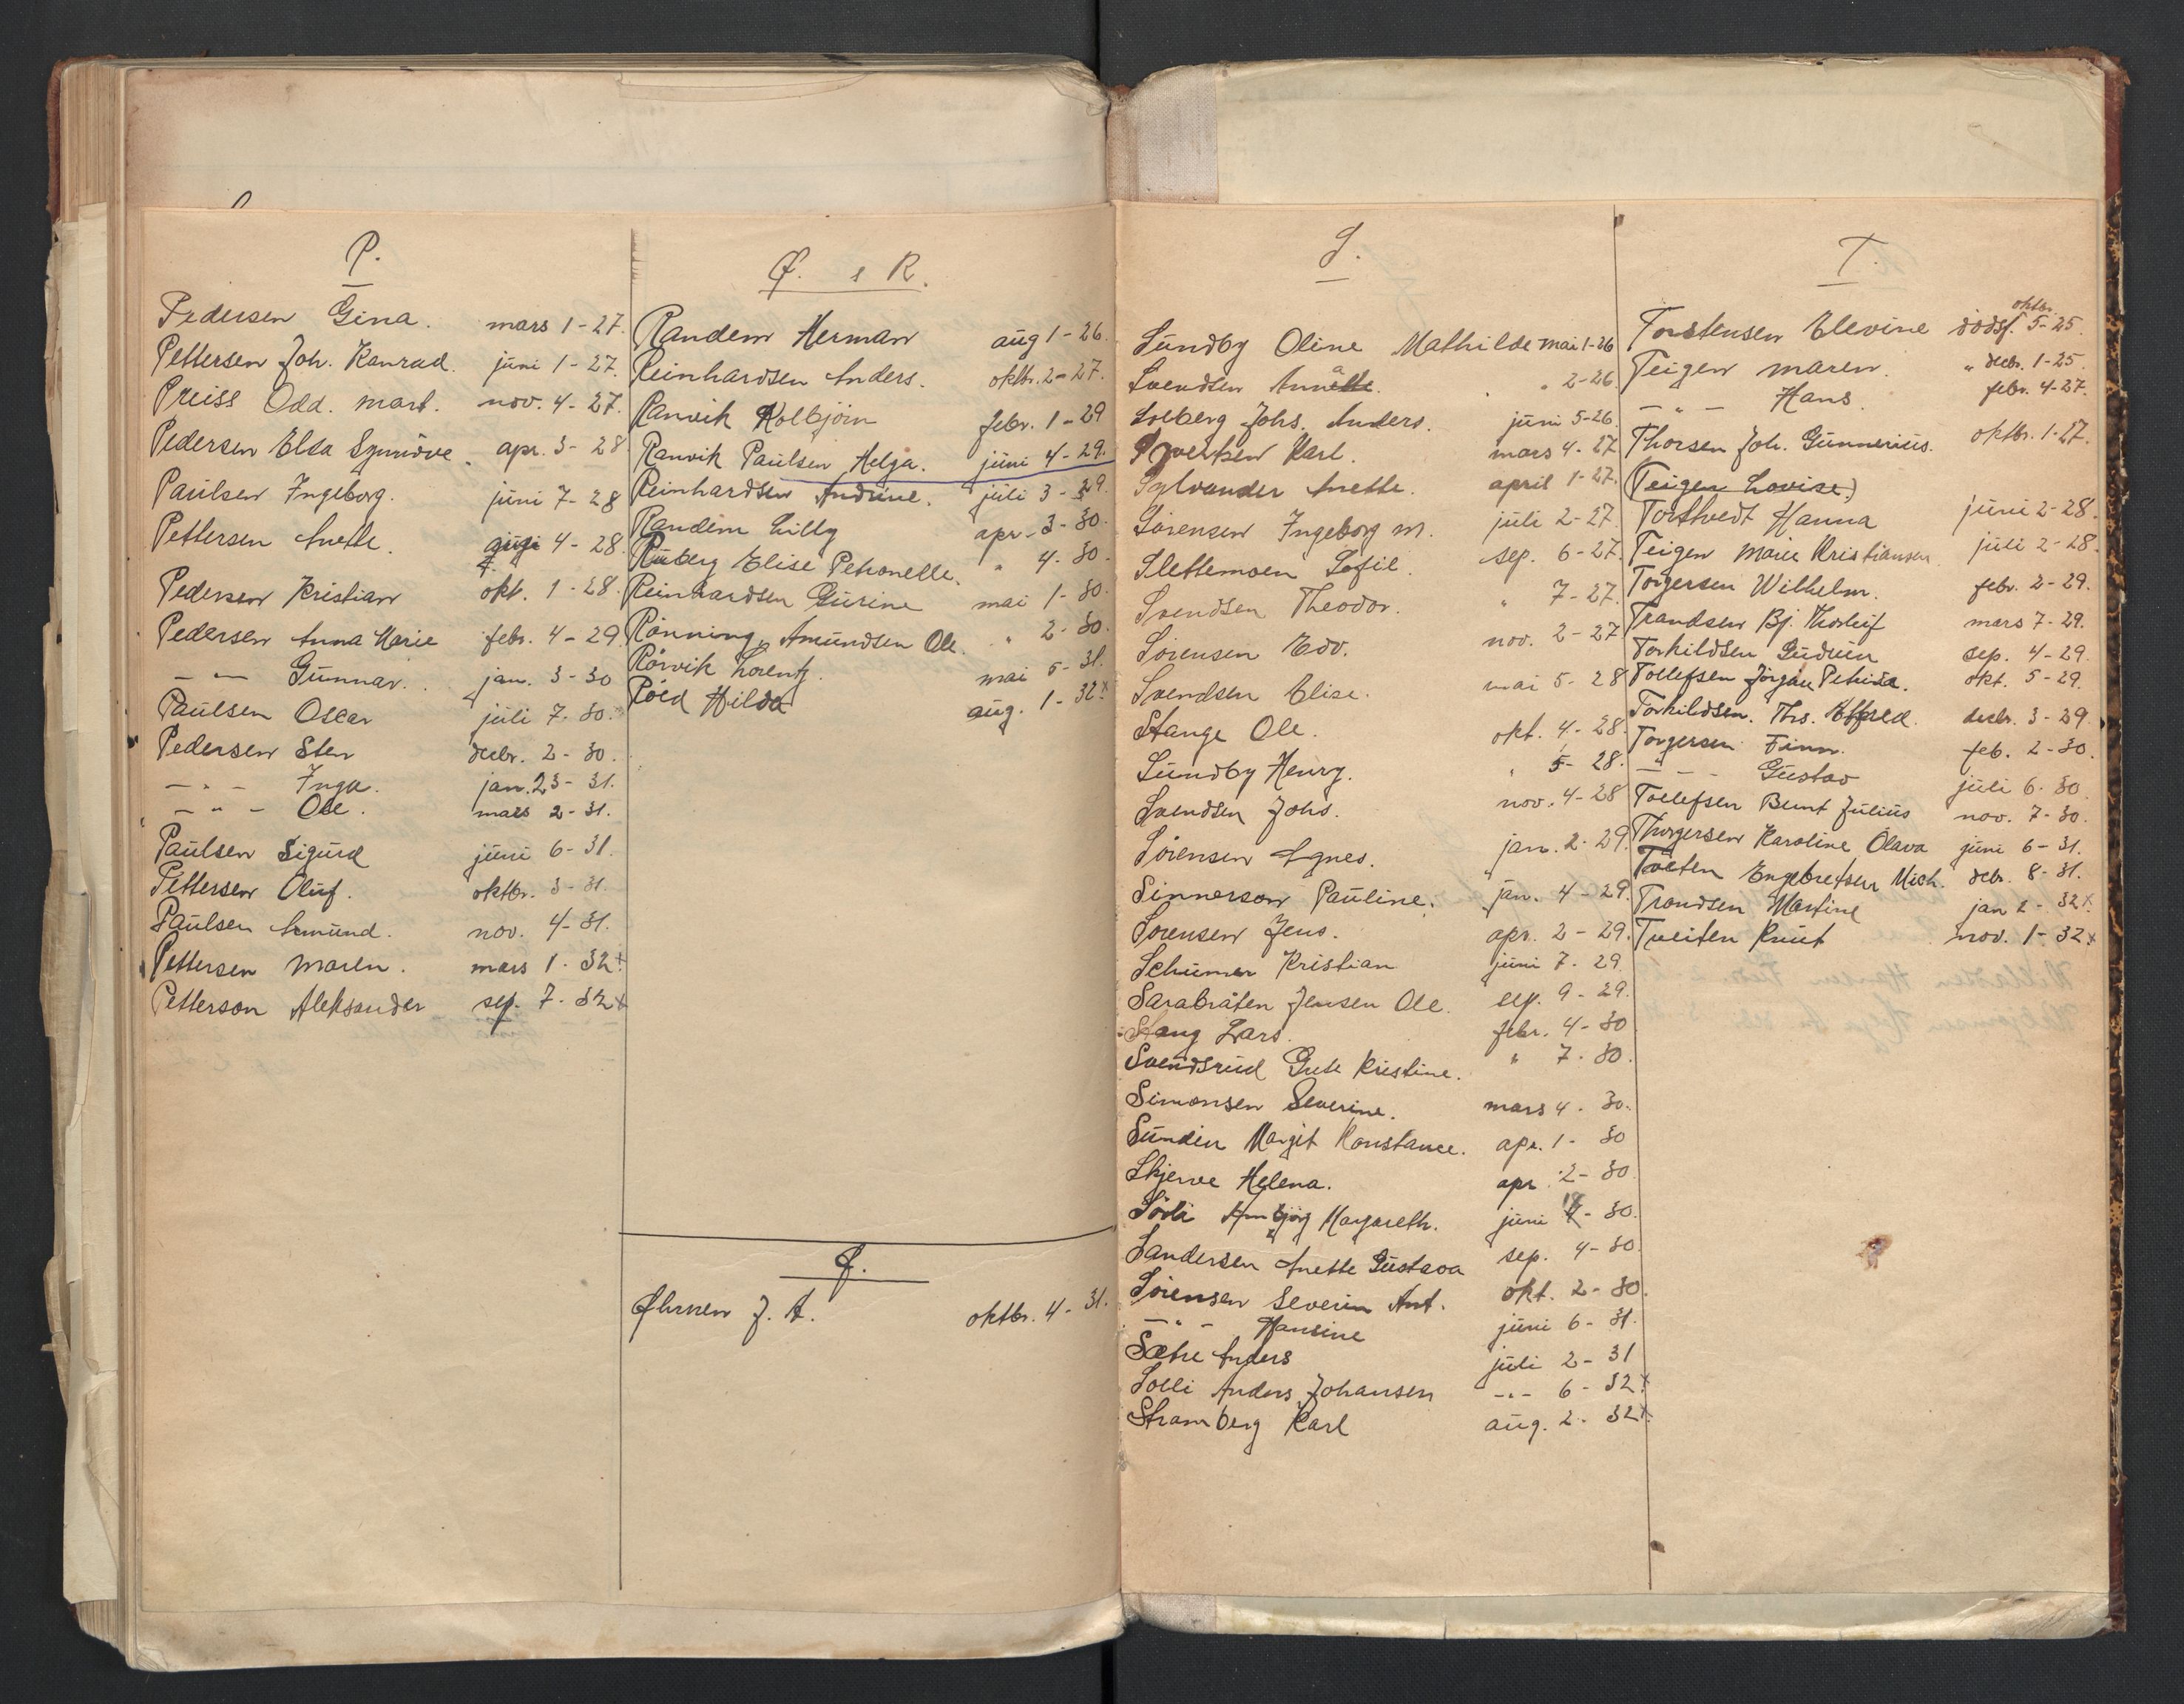 P.
Pedersen Gina. mars 1-27.
Pettersen Joh. Konrad. juni 1-27.
Preiss Odd. Mart. nov. 4-27.
Pedersen Elsa Synnöve. apr. 3-28
Paulsen Ingeborg. juni 7-28
Pettersen Anette. 4-28.
Pedersen Kristian okt. 1-28.
Pedersen Anna Marie febr. 4-29
- " - Gunnar. jan. 3-30
Paulsen Oscar juli 7-30.
Pedersen Sten decbr. 2-30.
- " - Inga. jan. 23-31.
- " - Ole. mars 2-31.
Paulsen Sigurd juni 6-31.
Pettersen Oluf. oktbr. 3-31.
Paulsen Amund. nov. 4-31.
Pettersen Maren. mars 1-32x
Petterson Aleksander sep. 7-32x
Q. & R.
Randem Herman aug 1-26.
Reinhardsen Anders. oktbr. 2-27.
Ranvik Kolbjörn febr. 1-29
Ranvik Paulsen Helga. juni 4-29.
Reinhardsen Andrine. juli 3-29.
Randem Lilly apr. 3-30.
Ruberg Elise Petronelle. " 4-30.
Reinhardsen Gurine mai 1-30.
Rönning, Amundsen Ole. " 2-30.
Rörvik Lorentz. mai 5-31.
Röed Hilda aug. 1-32x
Ø.
Øhrnen J. A. oktbr. 4-31.
S.
Sundby Oline Mathilde mai 1-26
Svendsen Anna. " 2-26.
Solberg Johs. Anders. juni 5-26.
Syvertsen Karl. mars 4-27
Sylvander Anette. april 1-27.
Sörensen Ingeborg M. juli 2-27.
Slettemoen Sofie. sep. 6-27.
Svendsen Theodor. " 7-27.
Sörensen Edv. nov. 2-27
Svendsen Elise. mai 5-28
Stange Ole. okt. 4-28.
Sundby Henry. " 5-28.
Svendsen Johs. nov. 4-28
Sörensen Agnes. jan. 2-29.
Sinnerson Pauline. jan. 4-29.
Sörensen Jens. apr. 2-29.
Schumer Kristian juni 7-29.
Sarabråten Jensen Ole. sep. 9-29.
Stang Lars. febr. 4-30
Svendsrud Gute Kristine. " 7-30.
Simonsen Severine. mars 4-30.
Sundin Margit Konstance. apr. 1-30
Skjerve Helena. apr. 2-30.
Sörli Margareth. juni 30.
Sandersen Anette Gustava sep. 4-30.
Sörensen Severin Ant. okt. 2-30.
- " - Hansine juni 6-31.
Sætre Anders juli 2-31
Solli Anders Johansen - " - 6-32x
Stramberg Karl aug. 2-32x
T.
Torstensen Elevine dödsf. oktbr. 5-25.
Teigen Maren. " decbr. 1-25.
- " - Hans. febr. 4-27.
Thorsen Joh. Gunnerius. oktbr. 1-27.
(Teigen Lovise.)
Torstvedt Hanna juni 2-28.
Teigen Marie Kristiansen juli 2-28.
Torgersen Wilhelm. febr. 2-29.
Trandsen Bj. Thorleif mars 7-29.
Torkildsen Gudrun sep. 4-29.
Tollefsen Jörgen Petrisa. okt. 5-29.
Torkildsen. Ths. Alfred. decbr. 3-29.
Torgersen Finn. feb. 2-30.
- " - Gustav juli 6-30.
Tollefsen Bernt Julius nov. 7-30.
Thorgersen Karoline Olava juni 6-31.
Toften Engebretsen Mich. decbr. 8-31.
Trondsen Martine jan 2-32x.
Tveiten Knut nov. 1-32x